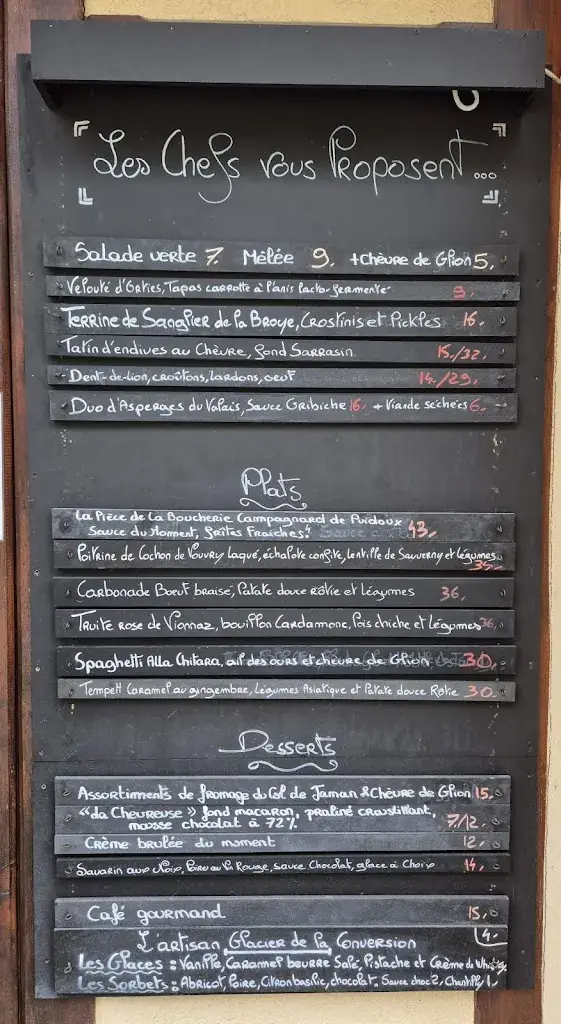 Les Chefs vous Proposent...
Salade verte 7. Mêlée 9. +Chèvre de Glion 5.
Velouté d'Orties, Tapas carrotte à l'anis lacto-fermenté 9.
Terrine de Sanglier de la Broye, Crostinis et Pickles 16.
Tatin d'endives au Chèvre, fond Sarrasin 15./32.
Dent-de-lion, croûtons, lardons, oeuf 14./29.
Duo d'Asperges du Valais, Sauce Gribiche 16. + Viande séchées 6.
Plats
La Pièce de La Boucherie Campagnard de Puidoux
Sauce du Moment, frites Fraîches. 43.
Poitrine de Cochon de Vouvry laqué, échalote confite, lentille de Sauverny et légumes
Carbonade Boeuf braisé, Patate douce rôtie et légumes 36.
Truite rose de Vionnaz, bouillon Cardamone, Pois chiche et légumes 36.
Spaghetti Alla Chitara, ail des ours et chèvre de Glion 30.
Tempeh Caramel au gingembre, légumes Asiatique et Patate douce Rôtie 30.
Desserts
Assortiments de fromage du Col de Jaman & Chèvre de Glion 15.
"da Cheureuse" fond macaron, praliné croustillant,
mousse chocolat à 72% 7/12.
Crème brulée du moment 12.
Savarin aux Noix, Poire au Vin Rouge, sauce Chocolat, glace à Choix 14.
Café gourmand 15.
L'artisan Glacier de la Conversion 4.
Les Glaces: Vanille, Caramel beurre Salé, Pistache et Crème de
Les Sorbets: Abricot, Poire, Citron basilic, chocolat, Sauce choc 2, Chantilly 1.